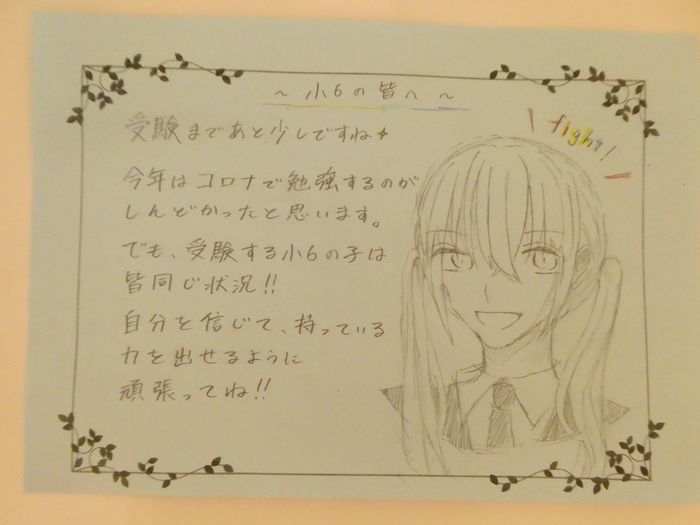 ～小6の皆へ～
受験まであと少しですね★
fight!
今年はコロナで勉強するのが
しんどかったと思います。
でも、受験する小6の子は
皆同じ状況!!
自分を信じて、持っている
力を出せるように
頑張ってね!!